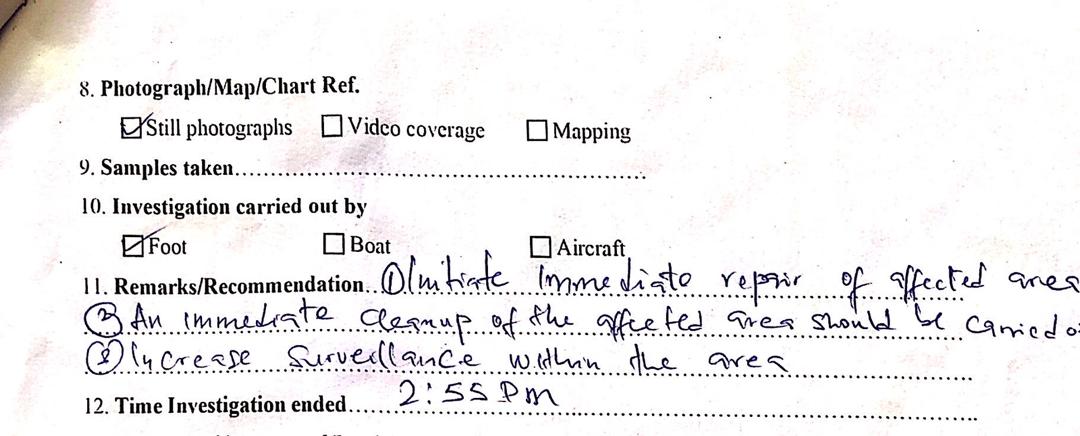 8. Photograph/Map/Chart Ref.
☑ Still photographs ☐ Video coverage ☐ Mapping
9. Samples taken
10. Investigation carried out by
☑ Foot ☐ Boat ☐ Aircraft
11. Remarks/Recommendation.. ① Initiate Immediate repair of affected area
③ An immediate cleanup of the affected area should be carried
② Increase Surveillance within the area
12. Time Investigation ended...... 2:55 Pm